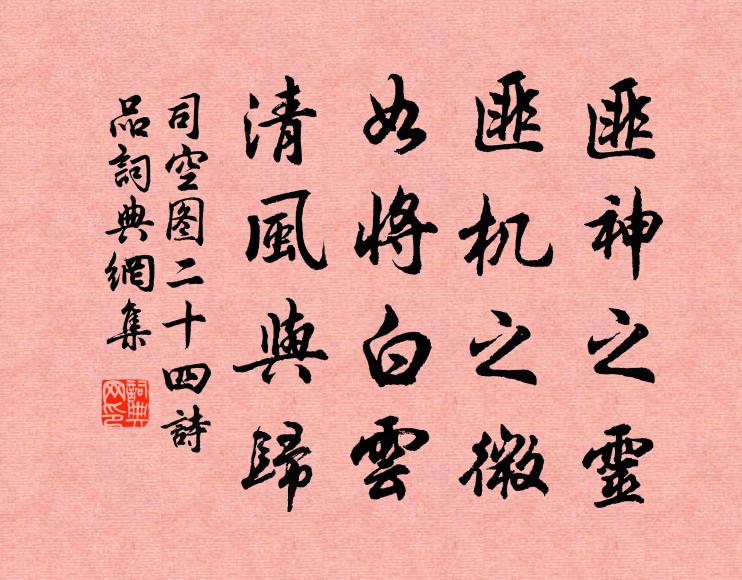 匪神之靈
匪机之微
如將白雲
清風與歸
司空图二十四詩
品詞典網集
詞典網印